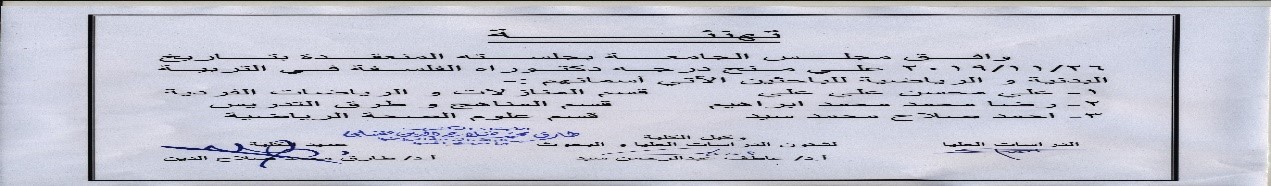 تهنئة
وافق مجلس الجامعة بجلسته المنعقدة بتاريخ
٢٠١٩/١١/٢٦ على منح درجة دكتوراه الفلسفة في التربية
البدنية و الرياضية للباحثين الأتي أسمائهم :-
١- على محسن على على قسم المنازلات و الرياضات الفردية
٢- رضا محمد محمد ابراهيم قسم المناهج و طرق التدريس
٣- احمد صلاح محمد سيد قسم علوم الصحة الرياضية
الدراسات العليا
وكيل الكلية
لشئون الدراسات العليا و البحوث
أ.د/ عاطف سيد
عميد الكلية
أ.د/ طارق صلاح الدين